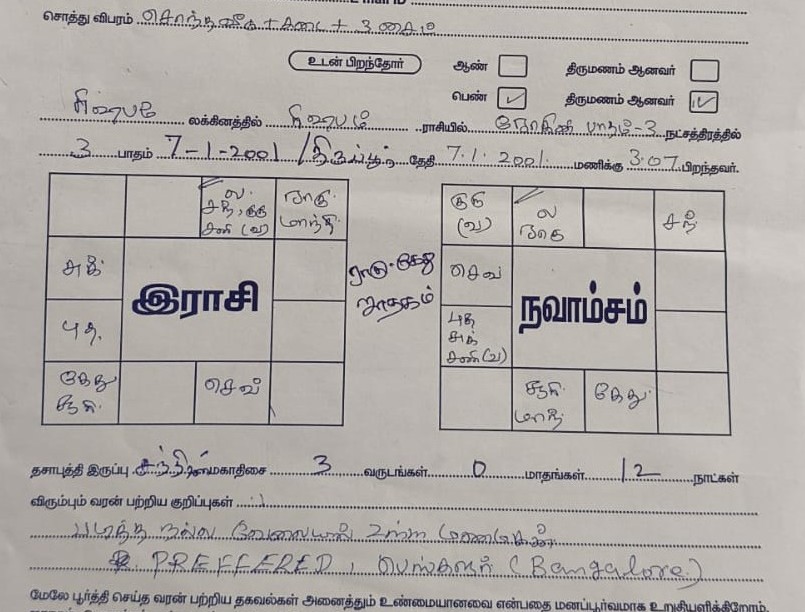 சொத்து விபரம் சொந்தவீடு + கடை + 3 சைட்
உடன் பிறந்தோர் ஆண் திருமணம் ஆனவர்
பெண் ✓ திருமணம் ஆனவர் 1✓
ரிஷபம் லக்கினத்தில் ரிஷபம் ராசியில் ரோகிணி பாதம்-3 நட்சத்திரத்தில்
3 பாதம் 7-1-2001 / திருப்பூர் தேதி 7.1.2001 மணிக்கு 3.07 பிறந்தவர்.
ல சந், குரு சனி (வ) ராகு மாந்தி
சுக்
புத.
கேது சூரி செவ்
இராசி
ராகு-கேது ஜாதகம்
குரு (வ) ல ராகு சந்
செவ்
புத சுக் சனி (வ)
சூரி மாந் கேது
நவாம்சம்
தசாபுத்தி இருப்பு சந்திரன் மகாதிசை 3 வருடங்கள் 0 மாதங்கள் 12 நாட்கள்
விரும்பும் வரன் பற்றிய குறிப்புகள் :
படித்த நல்ல வேலையில் உள்ள மணமகன்
PREFFERED, பெங்களூர் (Bangalore)
மேலே பூர்த்தி செய்த வரன் பற்றிய தகவல்கள் அனைத்தும் உண்மையானவை என்பதை மனப்பூர்வமாக உறுதியளிக்கிறோம்.